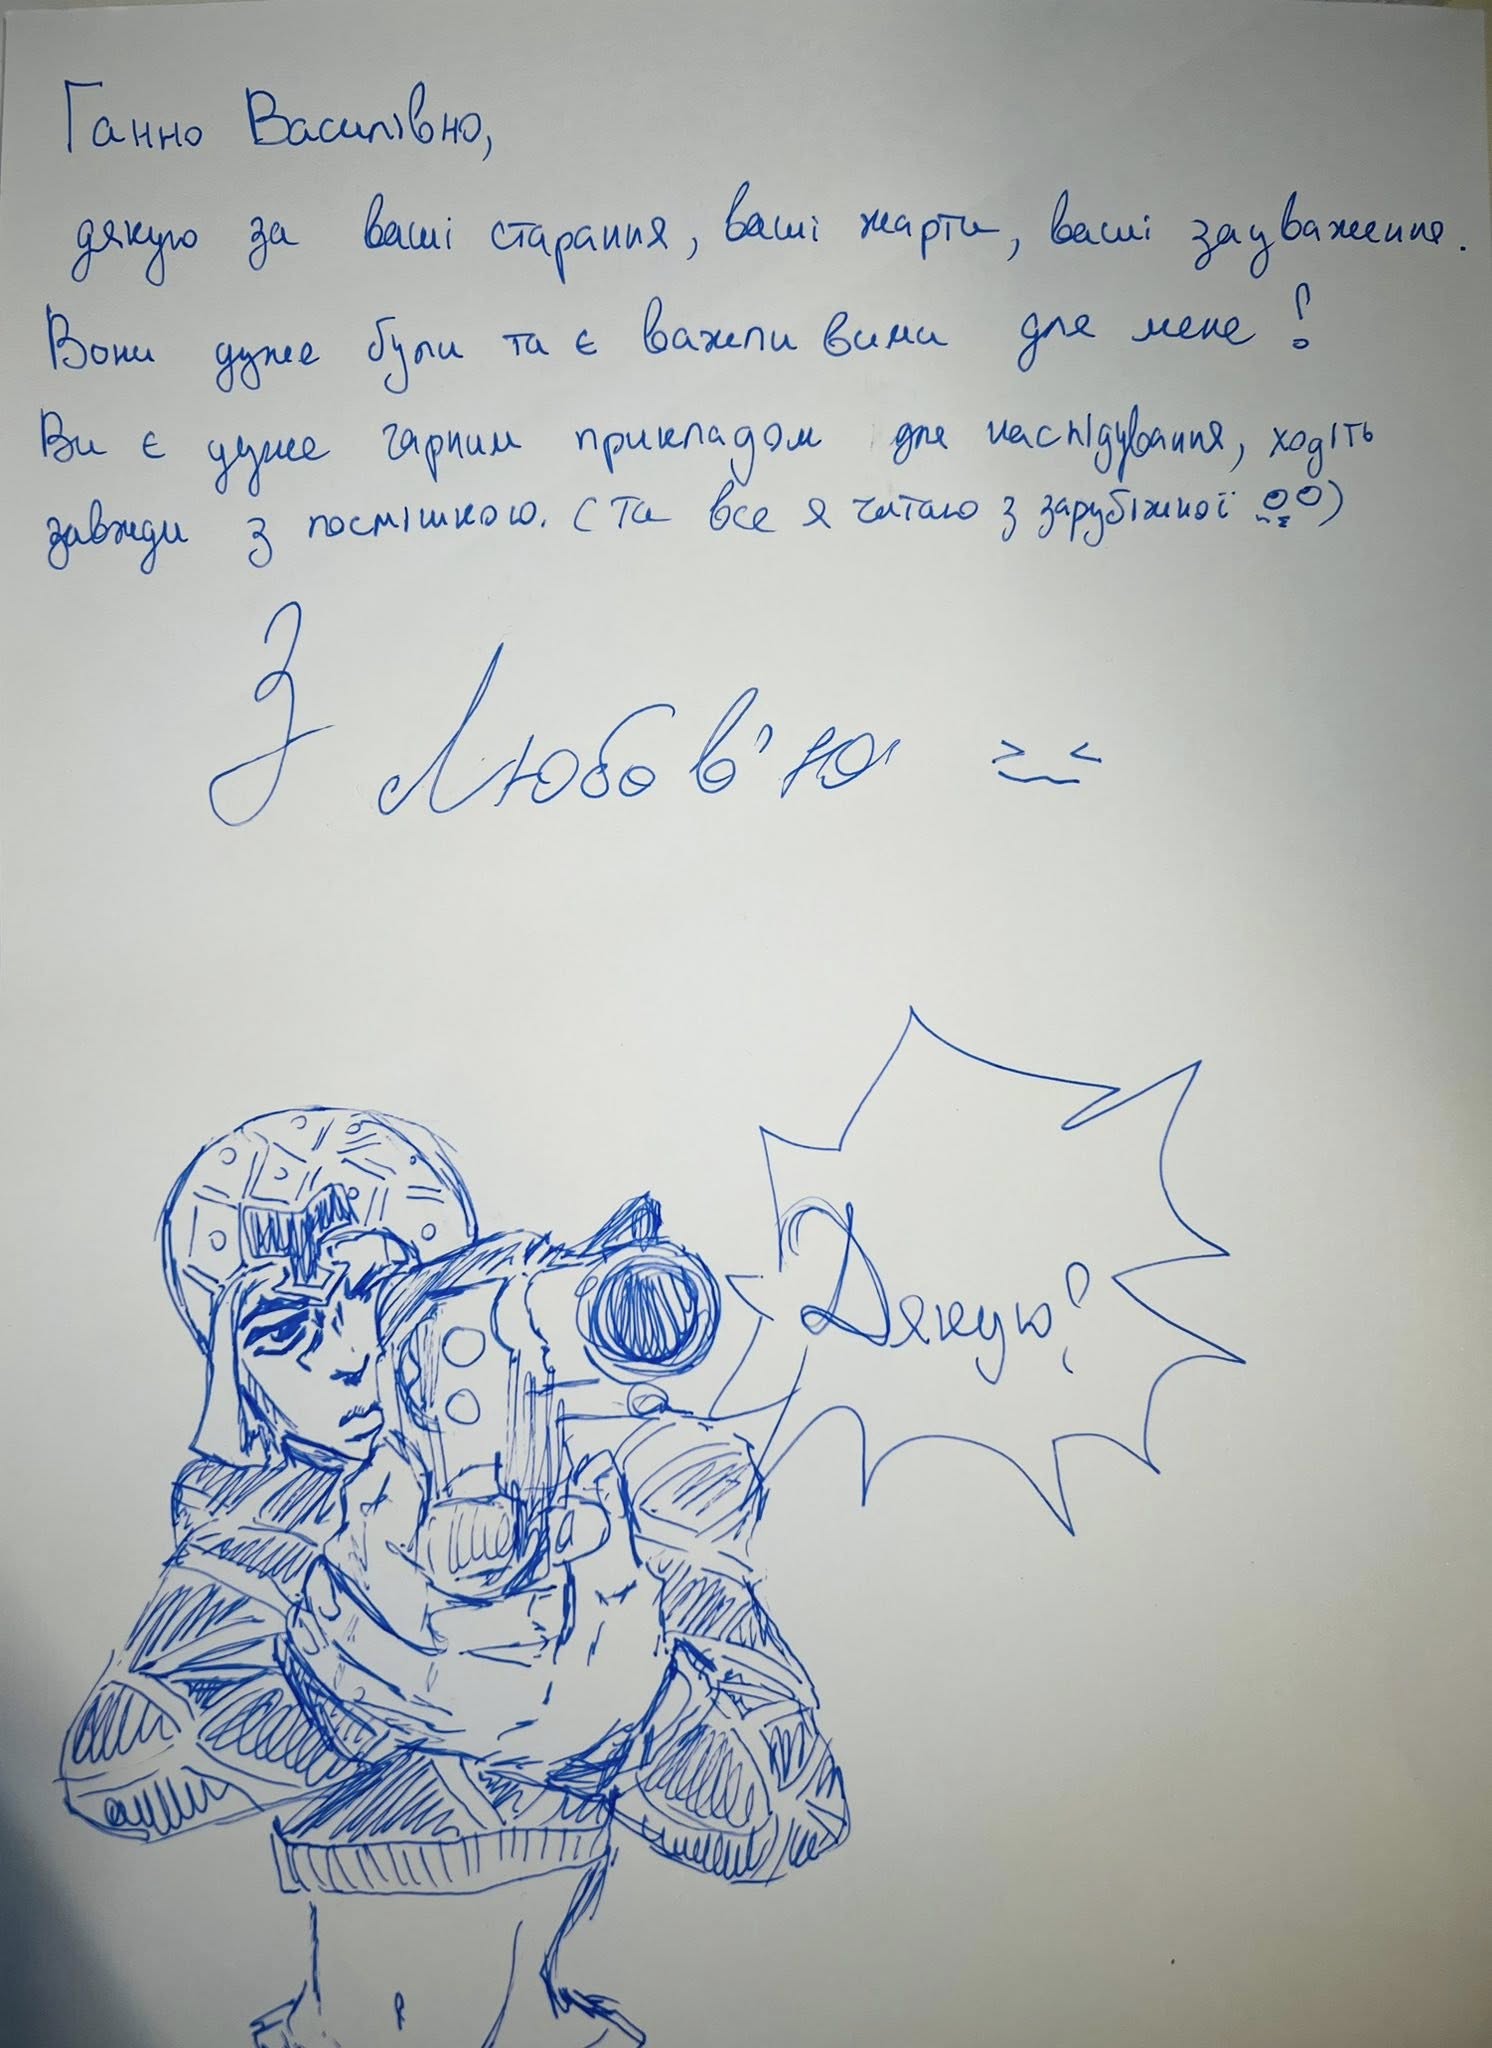 Ганно Василівно,
дякую за ваші старання, ваші жарти, ваші зауваження.
Вони дуже були та є важливими для мене!
Ви є дуже гарним прикладом для наслідування, ходіть
завжди з посмішкою. (Та все я читаю з зарубіжної)
З Любов'ю
Дякую!